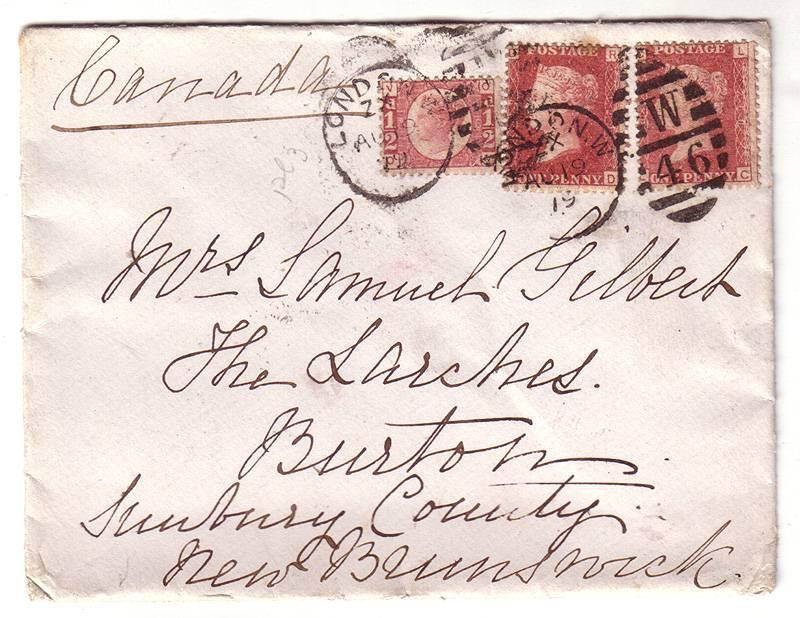 Canada
POSTAGE
POSTAGE
ONE PENNY
ONE PENNY
W
46
19
79
Mrs Samuel Gilbert
The Larches.
Burton.
Sunbury County
New Brunswick.